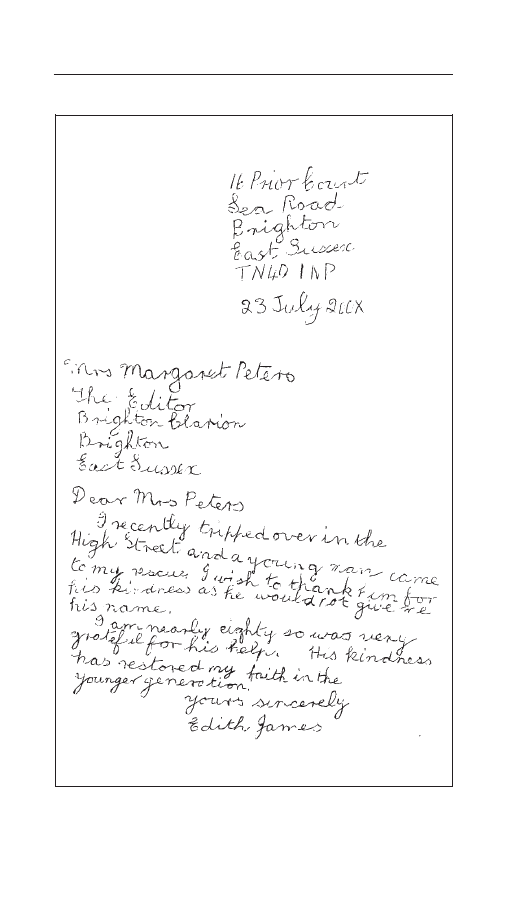 16 Prior Court
Sea Road
Brighton
East Sussex
TN40 1NP
23 July 200X
Mrs Margaret Peters
The Editor
Brighton Clarion
Brighton
East Sussex
Dear Mrs Peters
I recently tripped over in the
High Street and a young man came
to my rescue I wish to thank him for
his kindness as he would not give me
his name.
I am nearly eighty so was very
grateful for his help. His kindness
has restored my faith in the
younger generation.
yours sincerely
Edith James